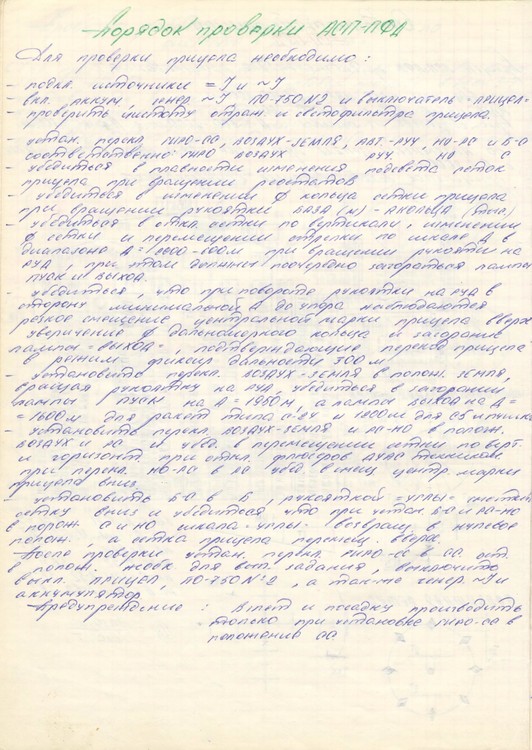 Порядок проверки АСП-ПФД
Для проверки прицела необходимо:
- подкл. источники =У и ~У
- вкл. аккум., генер. ~У ПО-750 №2 и выключатель "ПРИЦЕЛ"
- проверить чистоту отраж. и светофильтра прицела.
- устан. перекл. ГИРО-СС, ВОЗДУХ-ЗЕМЛЯ, АВТ.-РУЧ, НО-РС и Б-С
соответственно: ГИРО, ВОЗДУХ РУЧ, НО С
- убедиться в плавности изменения подсвета сеток
прицела при вращении реостатов
- убедиться в изменении ф кольца сетки прицела
при вращении рукоятки БАЗА (м) -
- убедиться в откл. сетки по вертикали, изменении
ф сетки и перемещении стрелки по шкале Д в
диапазоне Д = м при вращении рукоятки на
РУД, при этом должны поочередно загораться лампы
ПУСК и ВЫХОД.
- убедиться, что при повороте рукоятки на РУД в
сторону минимальной Д до упора наблюдаются
резкое смещение центральной марки прицела вверх
увеличение ф дальномерного кольца и загорание
лампы =ВЫХОД=, подтверждающие переход прицела
в режим фиксир. дальности 300 м.
- установить перекл. ВОЗДУХ-ЗЕМЛЯ в полож. ЗЕМЛЯ,
вращая рукоятку на РУД, убедиться в загорании
лампы ПУСК на Д = 1950 м, а лампы ВЫХОД на Д =
= 1600 м для ракет типа С-24 и 1200 м для С5 и пушки
- установить перекл. ВОЗДУХ-ЗЕМЛЯ и РС-НО в полож.
ВОЗДУХ и РС и убед. в перемещении сетки по верт.
и горизонт. при откл. флюгеров ДУАС техником
при перекл. НО-РС в РС убед. в смещ. центр. марки
прицела вниз.
- установить Б-С в Б, рукояткой =УГЛЫ= сместить
сетку вниз и убедиться что при устан. Б-С и РС-НО
в полож. С и НО шкала =УГЛЫ= возвращ. в нулевое
полож., а сетка прицела перемещ. вверх.
После проверки устан. перекл. ГИРО-СС в СС, ост.
в полож. необх. для вып. задания, выключить
выкл. ПРИЦЕЛ, ПО-750 №2, а также генер. ~У и
аккумулятор
Предупреждение : Взлет и посадку производить
только при установке ГИРО-СС в
положение СС